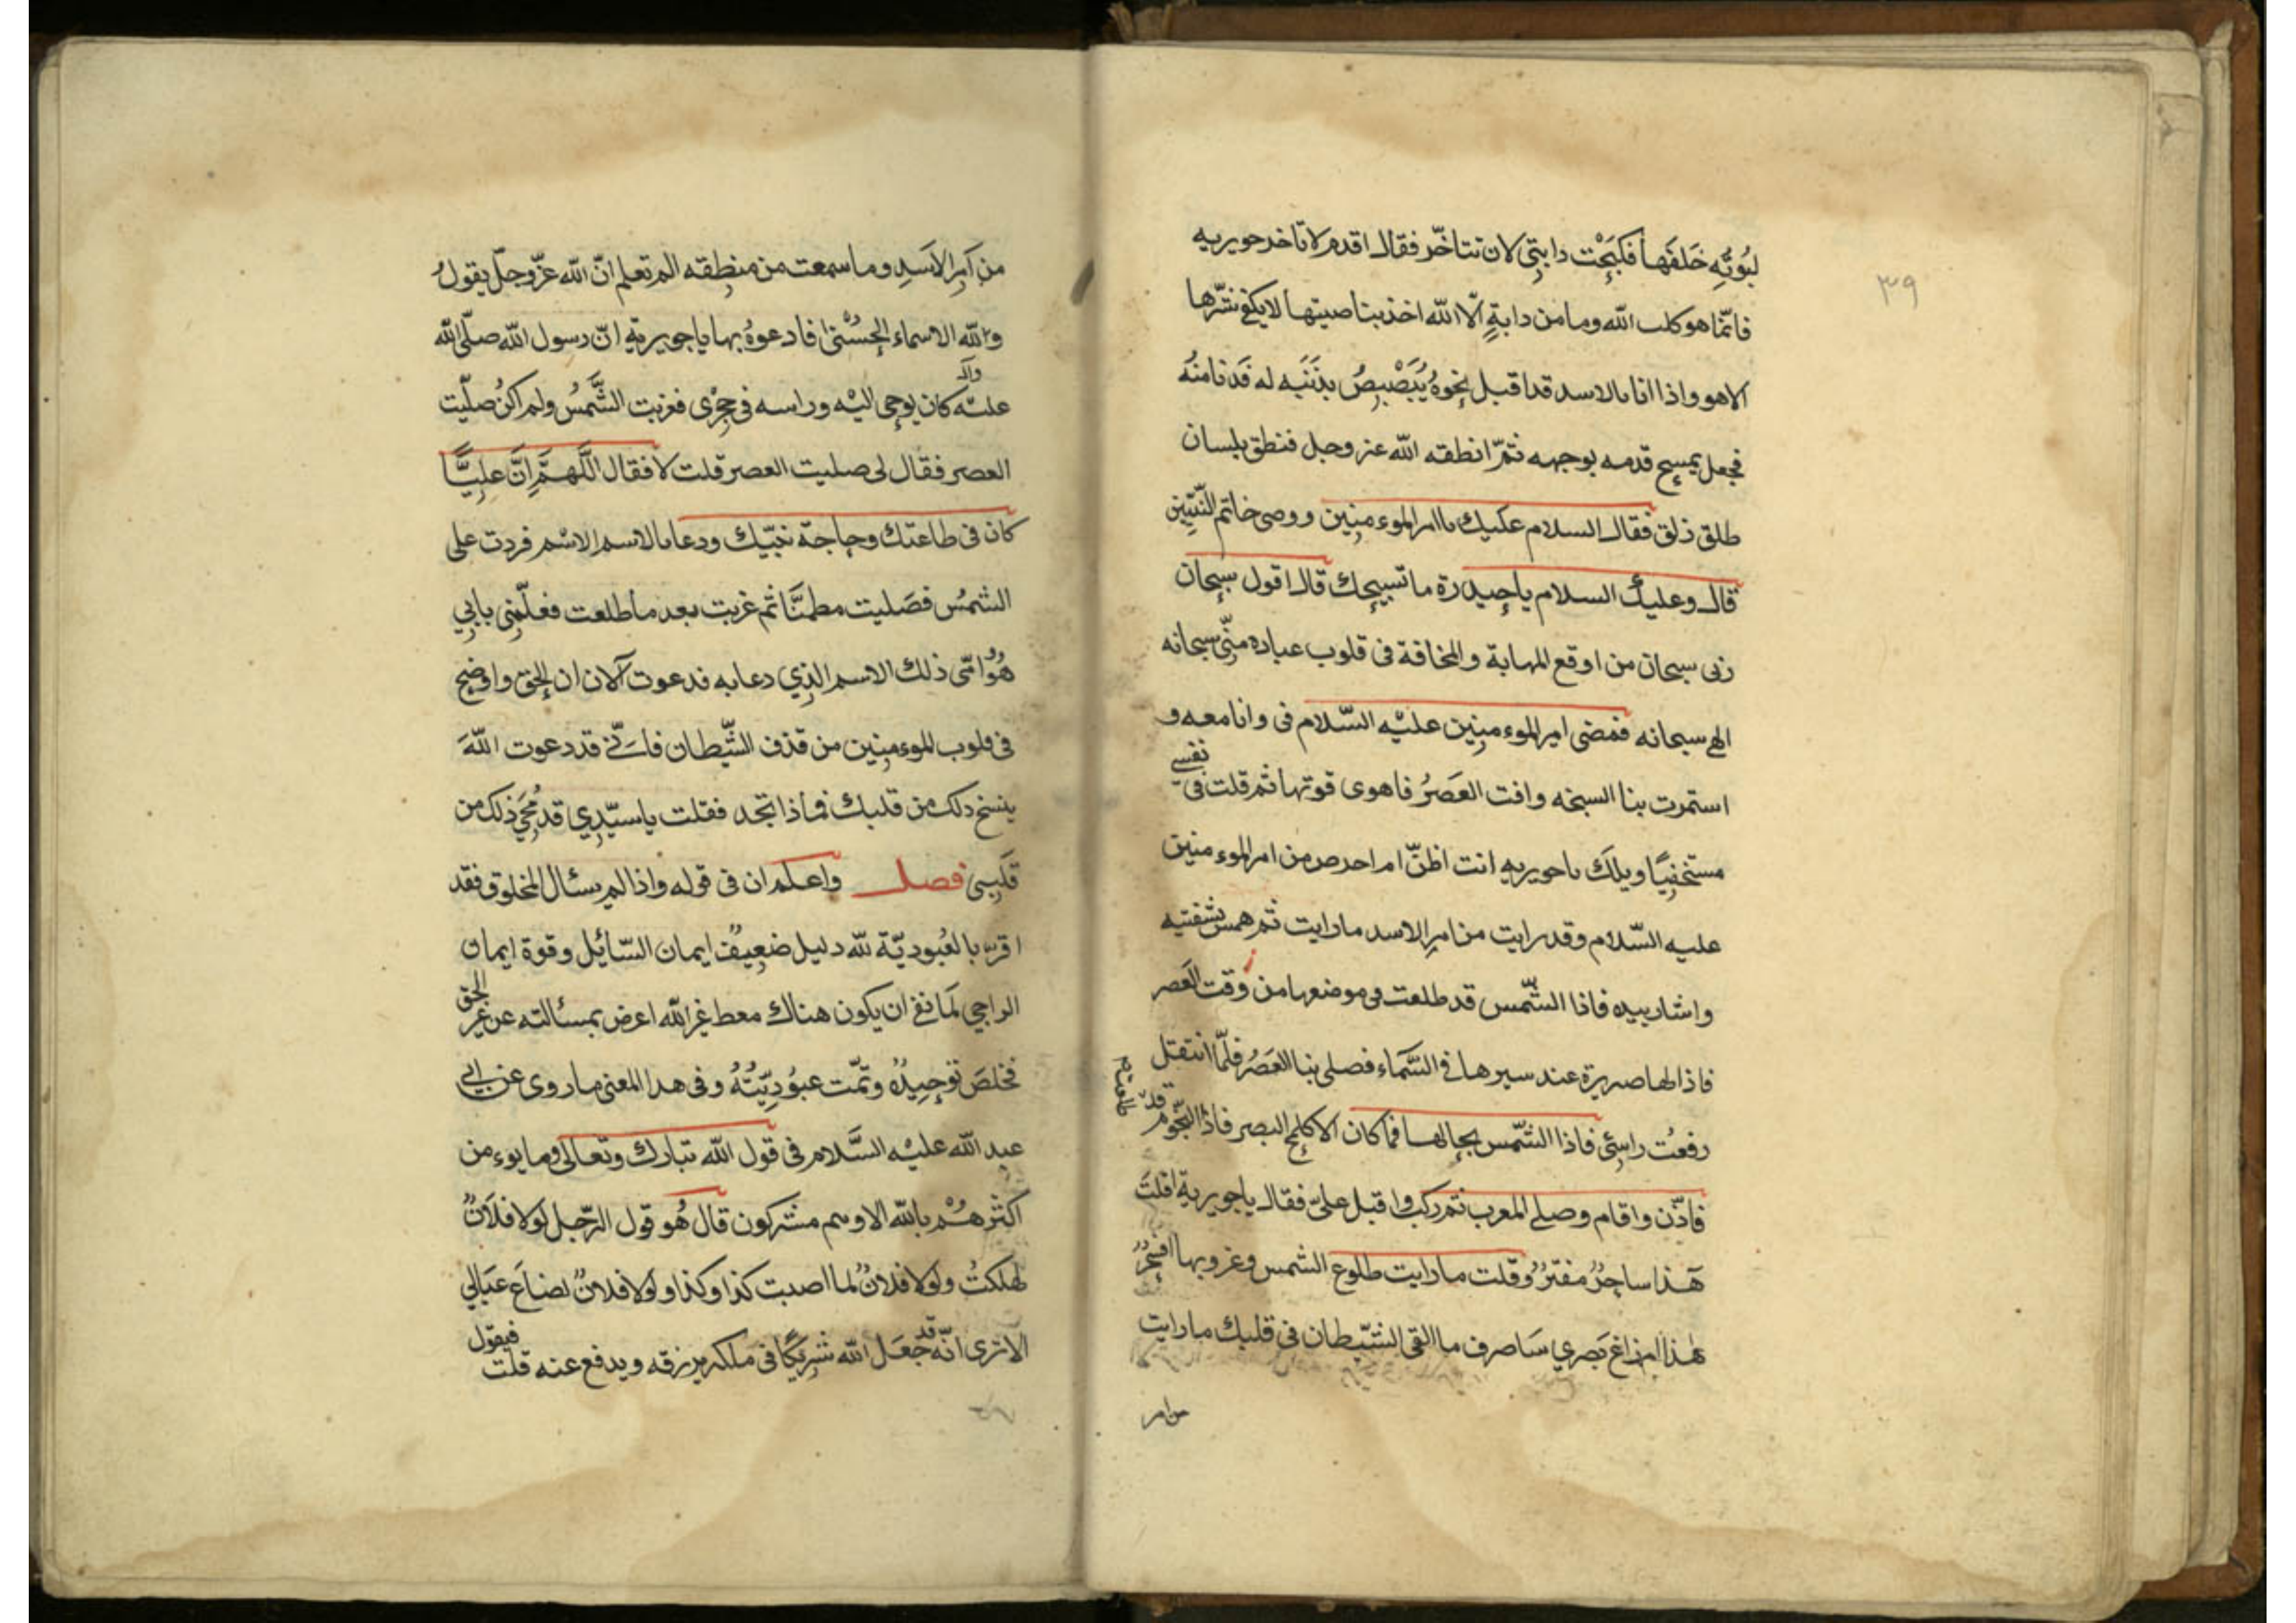 ٣٩
لبُوتِّهِ خَلفَها فكَبَحْت دابتِى لان تتاخّر فقال اقدم لا تاخد جويريه
فانّما هو كلب الله وما من دابةٍ الّا الله اخذ بناصيتها لا يكفى شرّها
الا هو واذا انا بالاسد قد اقبل نحوهُ يُبَصْبِصُ بذَنَبِه له فَدَنا منهُ
فجعل يمسح قدمه بوجهه ثمّ انطقه الله عز وجل فنطق بلسان
طلق ذلق فقال السلام عليك يا امير الموءمنِين ووصى خاتم النّبّيِين
قال وعليك السلام ياحيدرة ما تسبيحك قال اقول سبحان
ربى سبحان من اوقع المهابة والمخافة فى قلوب عباده منّى سبحانه
الهي سبحانه فمضى امير الموءمنِين عليْه السّلام فى وانا معه و
استمرت بنا السبخه وافت العَصَرُ فاهوى قوتها ثم قلت فى نفسى
مستخفِيًا ويلكَ يا جويريه انت اظنّ ام احرص من امير الموءمنين
عليه السّلام وقد رايت من امرِ الاسد ما رايت ثم همس بشفتيه
واشار بيده فاذا الشّمس قد طلعت فى موضعها من وقت العَصر
فاذا لها صريرة عند سيرها فى السَّماء فصلى بنا العَصَرُ فلمّا انتقتل
رفعْت راسِىْ فاذا الشّمس بحالها فما كان الا كلمح البصر فاذا النّجوم قد
فاذّن واقام وصلى المغرب ثم ركب واقبل علىّ فقال ياجويرية اقلتَ
هَذا ساحِرٌ مفترٌ وقلت ما رايت طلوع الشمس وغروبها افسِحْرٌ
هٰذا ام زاغ بَصَري سَاصرف ما القى الشيّطان فى قلبك ما رايت
من امر
من آمرِ الاَسَدِ وما سمعت من منطِقه الم تعلم انّ الله عزّ وجلّ يقولُ
ولله الاسماء الحُسْنى فادعوهُ بها ياجويريّةِ انّ رسول الله صلّى الله
عليْه وآله كان يُوحى اليْه وراسه فى حِجْرْى فغربت الشَّمسُ ولم اكنُ صلّيت
العصر فقال لى صليت العصر قلت لا فقال اللَّهمَّ اِنَّ علِيًّا
كان فى طاعتك وحاجة نبيّك ودعا بالاسم الاسْم فردت على
الشمسُ فصَليت مطمئنًّا ثم غربت بعد ما طلعت فعلّمنِى بابِي
هُوَ وامّى ذلك الاسم الذِي دعا به فدعوت آلان ان الحق واوضح
فى قلوب الموءمنِين من قذف الشّيطان فاِنّي قد دعوت اللّهَ
ينسخ ذلك من قلبك فماذا تجد فقلت ياسيّدِي قد مُحَي ذلك من
قَلبِى فصل واعلم ان فى قوله واذا لم يسئال المخلوق فقد
اقرّ بالعُبوديّة لله دليل ضعِيفٌ ايمان السّائِل وقوة ايمان
الراجي لَما نفى ان يكون هناك معط غير الله اعرض بمسألته عن غير الحق
فخلصَ توحِيدُهُ وتمّت عبُودِيّتُهُ وفى هذا المعنى ما روى عن ابي
عبد الله عليْه السَّلام فى قول الله تبارك وتعالى وما يوءمن
اكثرهُم بالله الا وهم مشركون قال هُو قول الرّجل لولا فلاَنٌ
لهلكتُ ولولا فلانٌ لما اصبت كذا وكذا ولولا فلانٌ لضاعَ عيَالي
الا ترى انّه قد جعَل الله شرِيكًا فى ملكه يرزقه ويدفع عنه قلت فيقول